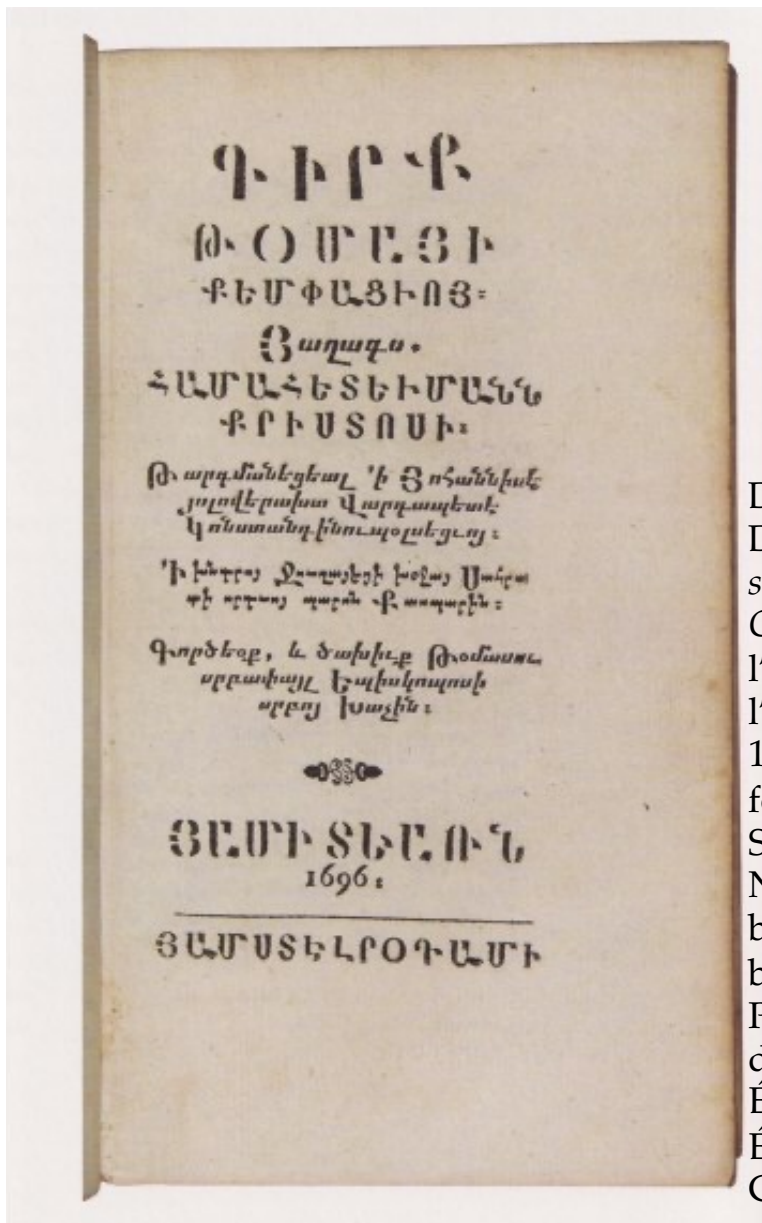 ԳԻՐՔ
ԹՕՄԱՅԻ
ՔԵՄՓԱՑԻՈՅ։
Յաղագս.
ՀԱՄԱՀԵՏԵՒՄԱՆՆ
ՔՐԻՍՏՈՍԻ։
Թարգմանեցեալ ՚ի Յոհաննիսէ
յոլովերախտ Վարդապետէ
Կոնստանդինուպօլսեցւոյ։
՚Ի խնդրոյ Ջուղայեցի խօջայ
որդւոյ պարոն Գասպարին։
Գործեօք, և ծախիւք Թօմասու
սրբափայլ Եպիսկոպոսի
սրբոյ Խաչին։
ՅԱՄԻ ՏԵԱՌՆ
1696։
ՅԱՄՍՏԵԼՐՕԴԱՄԻ